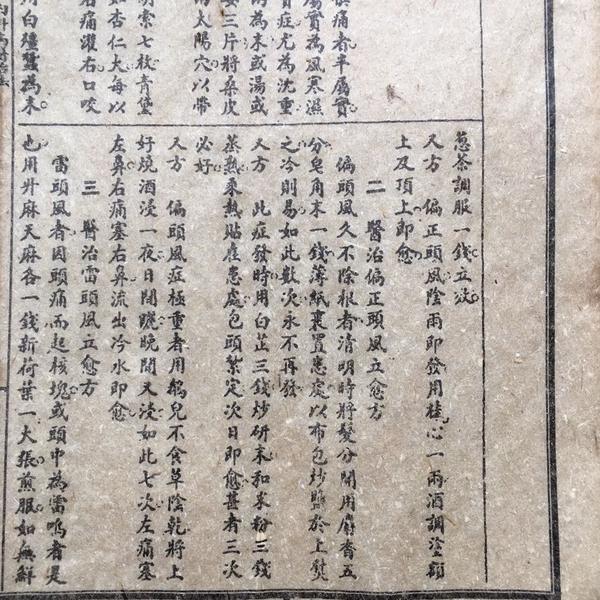 痛者半屬實
屬實為風寒濕
實症尤為沈重
為末或湯或
三片將桑皮
太陽穴以帶
索七枚青黛
如杏仁大每以
痛灌右口咬
用白殭蠶為末
葱茶調服一錢立效
又方　偏正頭風陰雨即發用桂心一兩酒調塗額
上及頂上即愈
二　醫治偏正頭風立愈方
偏頭風久不除根者清明時將髮分開用麝香五
分皂角末一錢薄紙裹置患處以布包炒鹽於上熨
之冷則易如此數次永不再發
又方　此症發時用白芷三錢炒研末和米粉三錢
蒸熟乘熱貼在患處包頭紮定次日即愈甚者三次
必好
又方　偏頭風症極重者用鵝兒不食草陰乾將上
好燒酒浸一夜日間曬晚間又浸如此七次左痛塞
左鼻右痛塞右鼻流出冷水即愈
三　醫治雷頭風立愈方
雷頭風者因頭痛而起核塊或頭中為雷鳴者是
也用升麻天麻各一錢新荷葉一大張煎服如無鮮